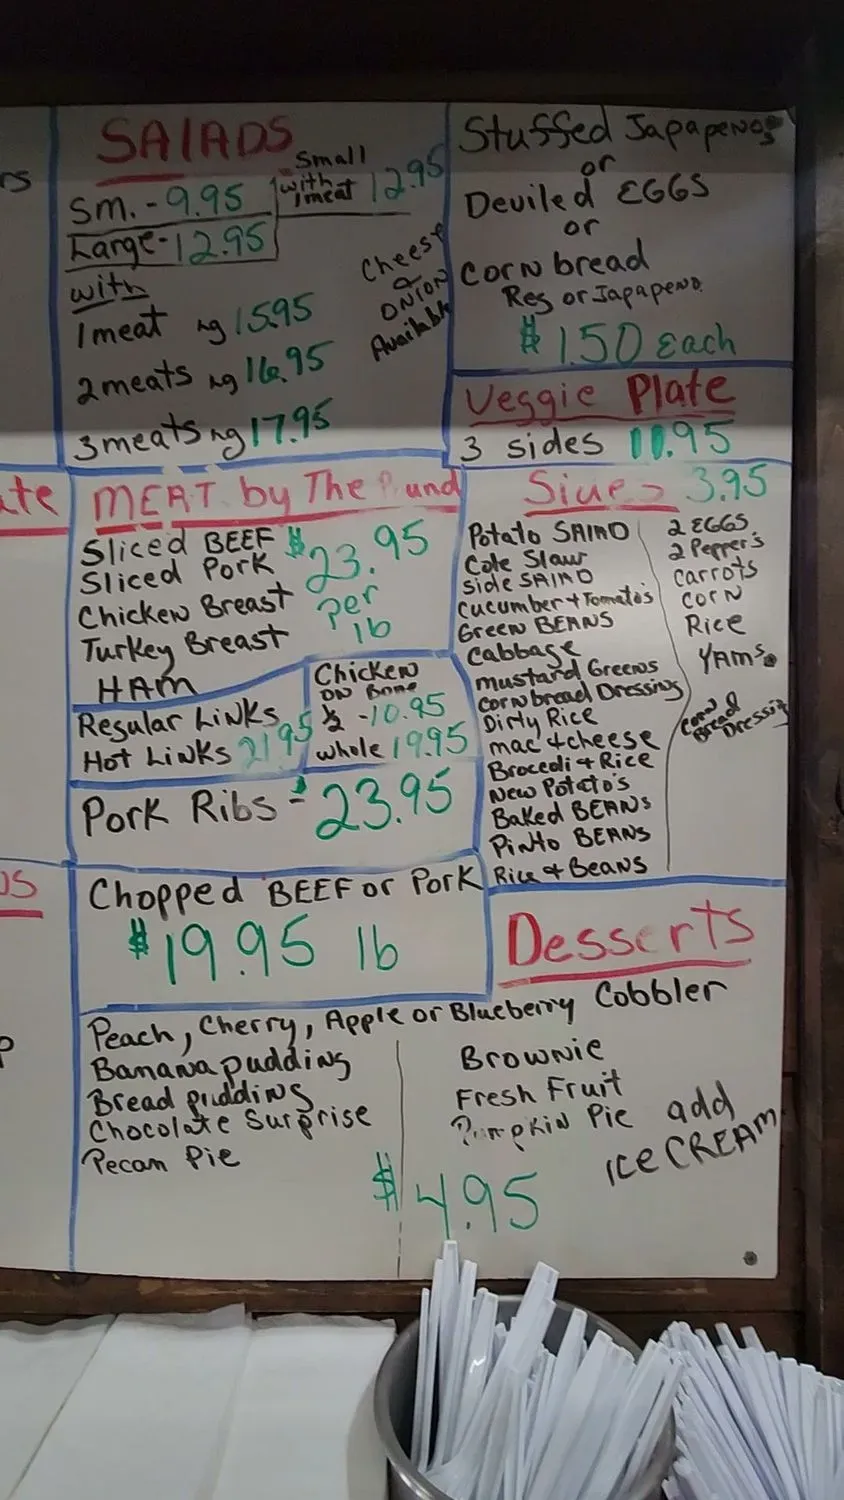 rs
SALADS
Sm. - 9.95
Small
with
1 meat 12.95
Large - 12.95
with
1 meat 15.95
2 meats 16.95
3 meats 17.95
Cheese
&
ONION
Available
Stuffed Japapenos
or
Deviled EGGS
or
Corn bread
Reg or Japapeno.
$1.50 Each
Veggie Plate
3 sides 11.95
ate
MEAT by The
Sliced BEEF
Sliced Pork
Chicken Breast
Turkey Breast
HAM
$23.95
per
lb
Regular LiNKs
Hot LiNKs 21.95
Chicken
ON Bone
½ - 10.95
whole 19.95
Pork Ribs - $23.95
Chopped BEEF or Pork
$19.95 lb
3.95
Potato SAlAD
Cole Slaw
side SAlAD
cucumber + Tomato's
Green BEANS
Cabbage
mustard Greens
cornbread Dressing
Dirty Rice
mac + cheese
Brocoli + Rice
New Potato's
Baked BEANs
Pinto BEANs
Rice + Beans
2 EGGS
2 Pepper's
carrots
corn
Rice
YAMs
Corn
Bread
Dressing
os
Desserts
P
Peach, Cherry, Apple or Blueberry Cobbler
Banana pudding
Bread pudding
Chocolate Surprise
Pecan Pie
Brownie
Fresh Fruit
Pumpkin Pie
add
ICE CREAM
$4.95